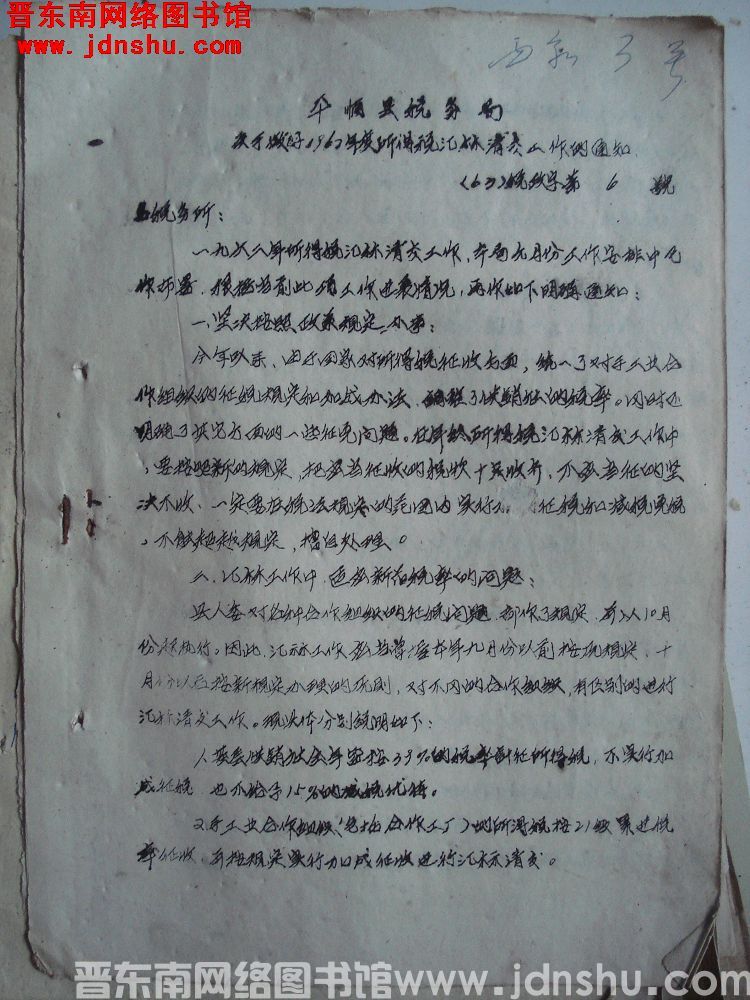 晋东南网络图书馆
www.jdnshu.com
号
平顺县税务局
关于做好1962年度所得税汇标清交工作的通知
(63)税政字第 6 号
各税务所：
一九六二年所得税汇标清交工作，本局九月份工作安排中已
作布署，根据当前此项工作进展情况，再作如下明确通知：
一、坚决按照政策规定办事：
今年以来，由于国家对所得税征收方面，统一了对手工业合
作组织的征税规定和加成办法，确定了供销社的税率。同时还
明确了其它方面的一些征免问题。在年终所得税汇标清交工作中
，要按照新的规定，把应当征收的税收十足收齐，不应当征的坚
决不收，一定要在税法规定的范围内实行。征税加减税免税
，不能超越规定，擅自处理。
二、汇标工作中，适应新旧税率的问题：
县人委对各种合作组织的征税问题，都作了规定，并从10月
份起执行。因此，汇标工作应当掌握本年九月份以前按现规定，十
月份以后按新规定办理的原则，对不同的合作组织，有区别的进行
汇标清交工作。现具体分别说明如下：
1.基层供销社全年实按39%的税率计征所得税，不实行加
成征税，也不给予15%的减税优待。
2.手工业合作组织（包括合作工厂）的所得税按21级累进税
率征收，并按规定实行加成征收进行汇标清交。
晋东南网络图书馆www.jdnshu.com